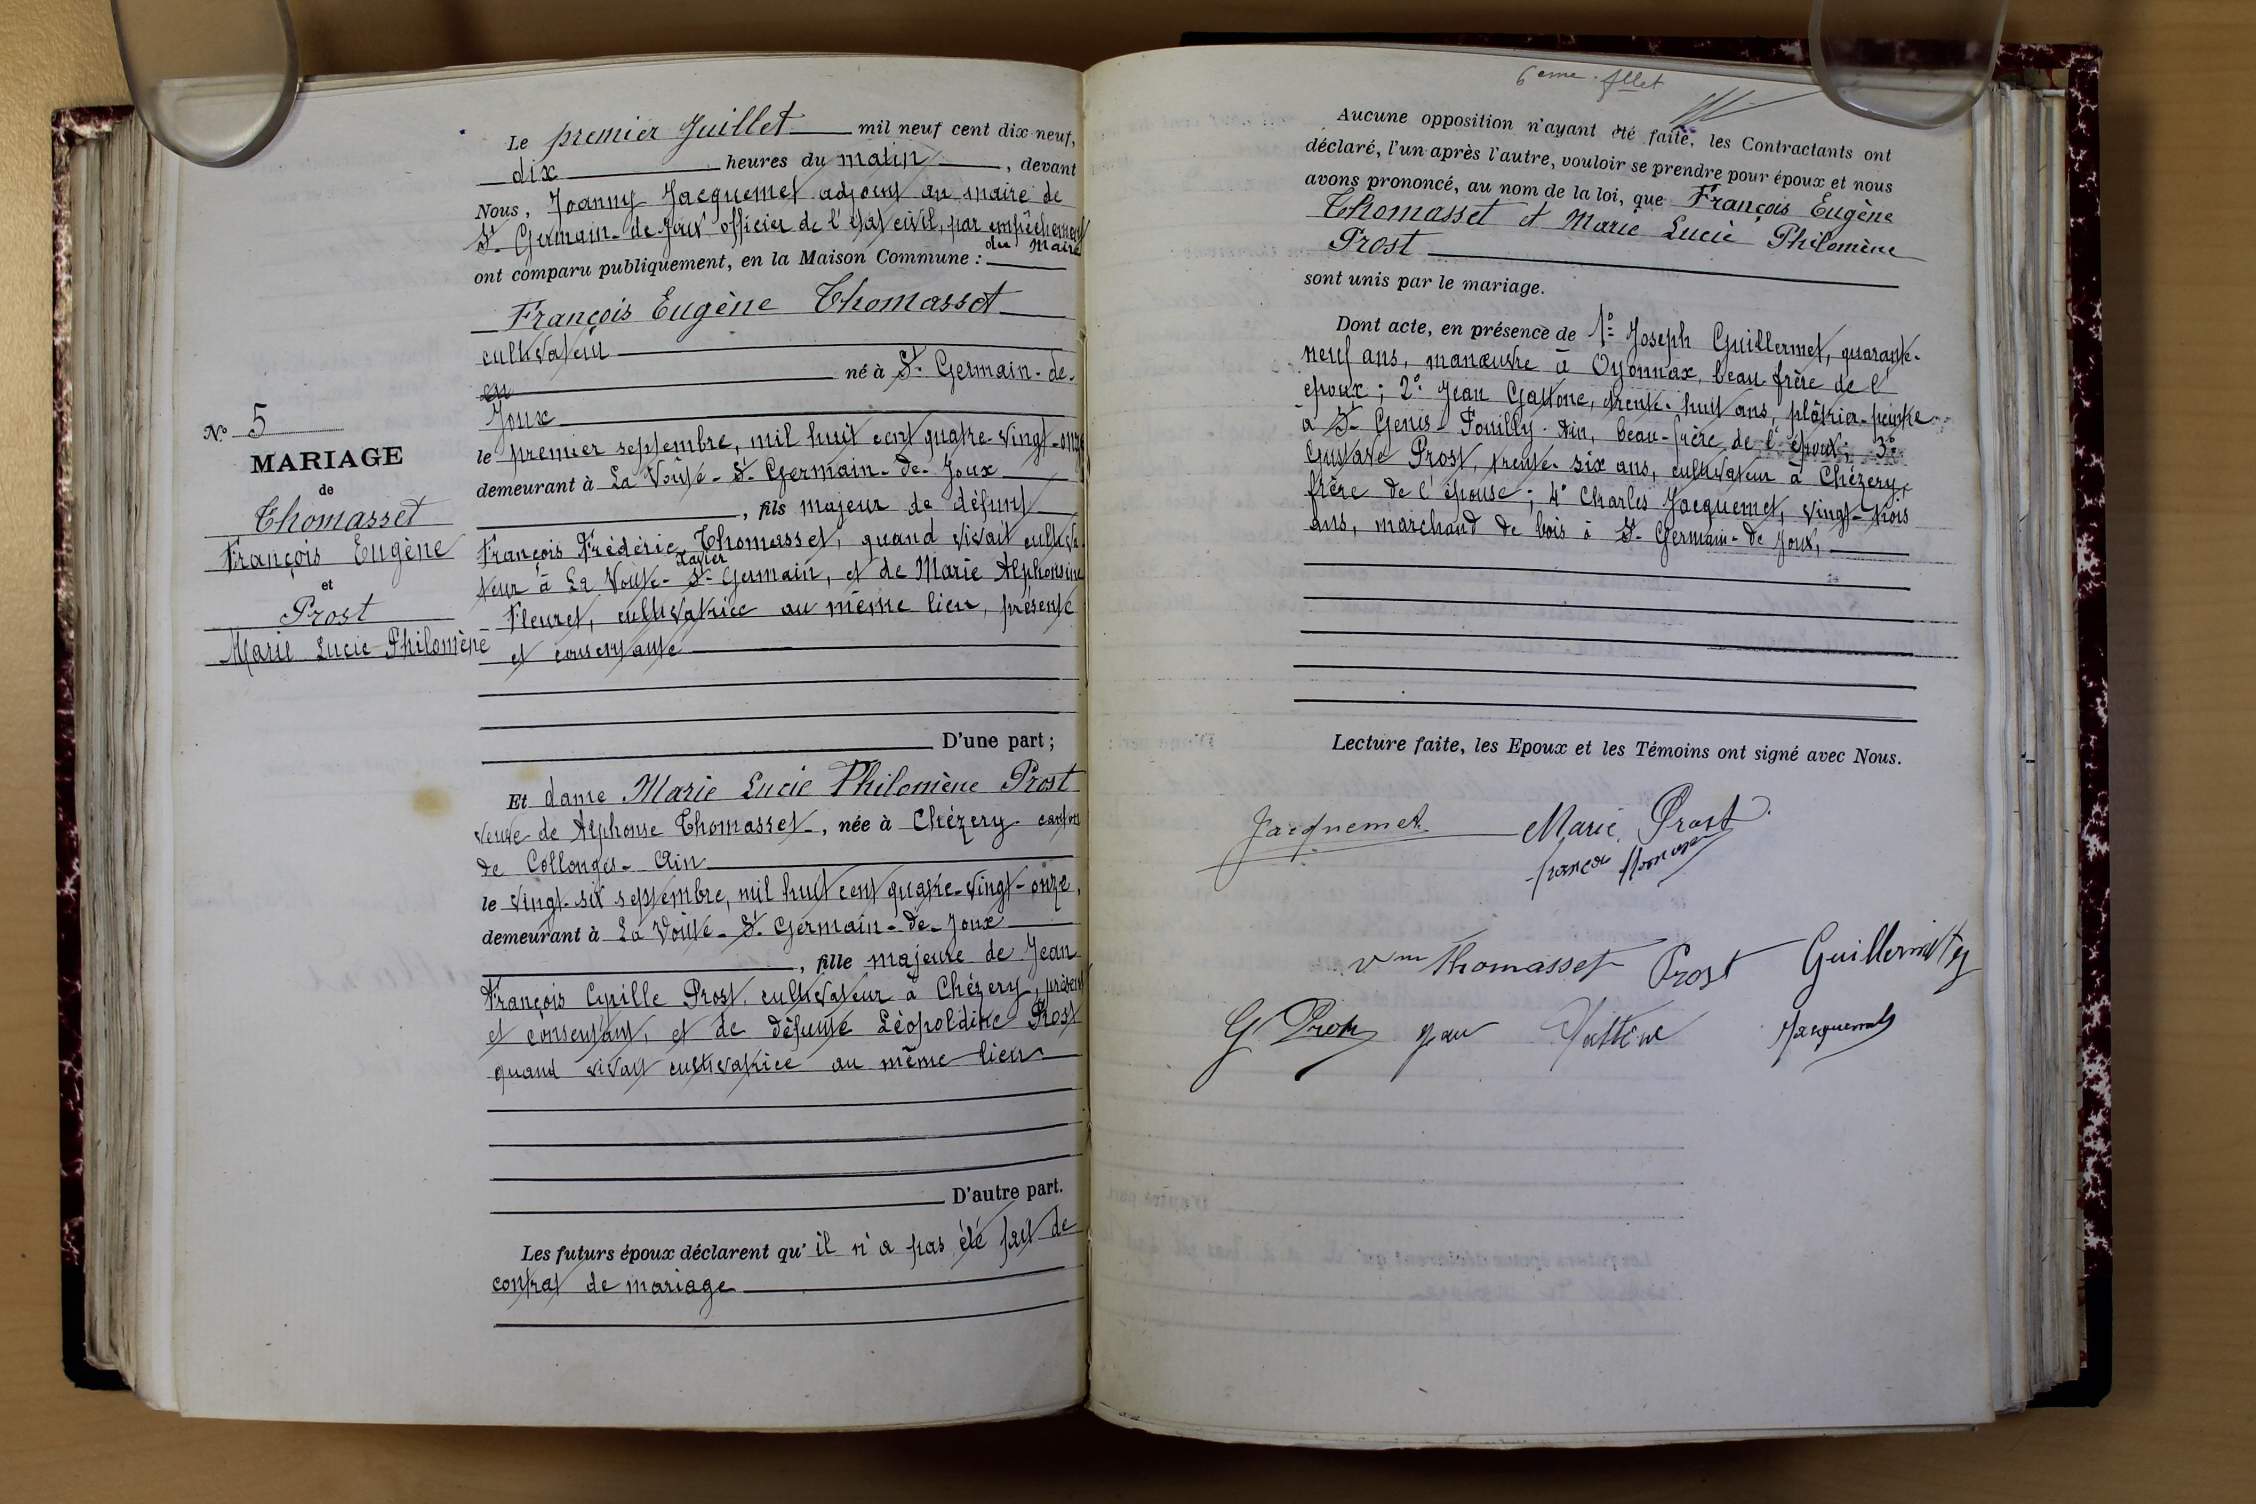 Le premier Juillet mil neuf cent dix-neuf,
dix heures du matin, devant
Nous, Joanny Jacquemet adjoint au maire de
St. Germain-de-Joux officier de l'état civil, par empêchement
du Maire
ont comparu publiquement, en la Maison Commune :
François Eugène Thomasset
cultivateur
né à St. Germain-de-
Joux
le premier septembre, mil huit cent quatre-vingt-onze
demeurant à La Voûte-St. Germain-de-Joux
, fils majeur de défunt
François Frédéric Thomasset, quand vivait cultiva
Xavier
teur à La Voûte-St-Germain, et de Marie Alphonsine
Fleuret, cultivatrice au même lieu, présente
et consentante
D'une part ;
N° 5
MARIAGE
de
Thomasset
François Eugène
et
Prost
Marie Lucie Philomène
Et dame Marie Lucie Philomène Prost
veuve de Alphonse Thomasset, née à Chézery canton
de Collonges-Ain
le vingt-six septembre, mil huit cent quatre-vingt-onze,
demeurant à La Voûte-St. Germain-de-Joux
, fille majeure de Jean
François Cyrille Prost, cultivateur à Chézery, présent
et consentant, et de défunte Léopoldine Prost
quand vivait cultivatrice au même lieu
D'autre part.
Les futurs époux déclarent qu'il n'a pas été fait de
contrat de mariage
6eme fllet
Aucune opposition n'ayant été faite, les Contractants ont
déclaré, l'un après l'autre, vouloir se prendre pour époux et nous
avons prononcé, au nom de la loi, que François Eugène
Thomasset et Marie Lucie Philomène
Prost
sont unis par le mariage.
Dont acte, en présence de 1° Joseph Guillermet, quarante-
neuf ans, manœuvre à Oyonnax, beau frère de l'
époux ; 2° Jean Gattone, trente-huit ans, plâtrier-peintre
à St Genis-Pouilly-Ain, beau-frère de l'époux ; 3°
Gustave Prost, trente-six ans, cultivateur à Chézery,
frère de l'épouse ; 4° Charles Jacquemet, vingt-trois
ans, marchand de bois à St-Germain-de Joux,
Lecture faite, les Epoux et les Témoins ont signé avec Nous.
Jacquemet Marie Prost
françois
Vve Thomasset Prost Guillermet
G Prost Jean Gattone Jacquemet